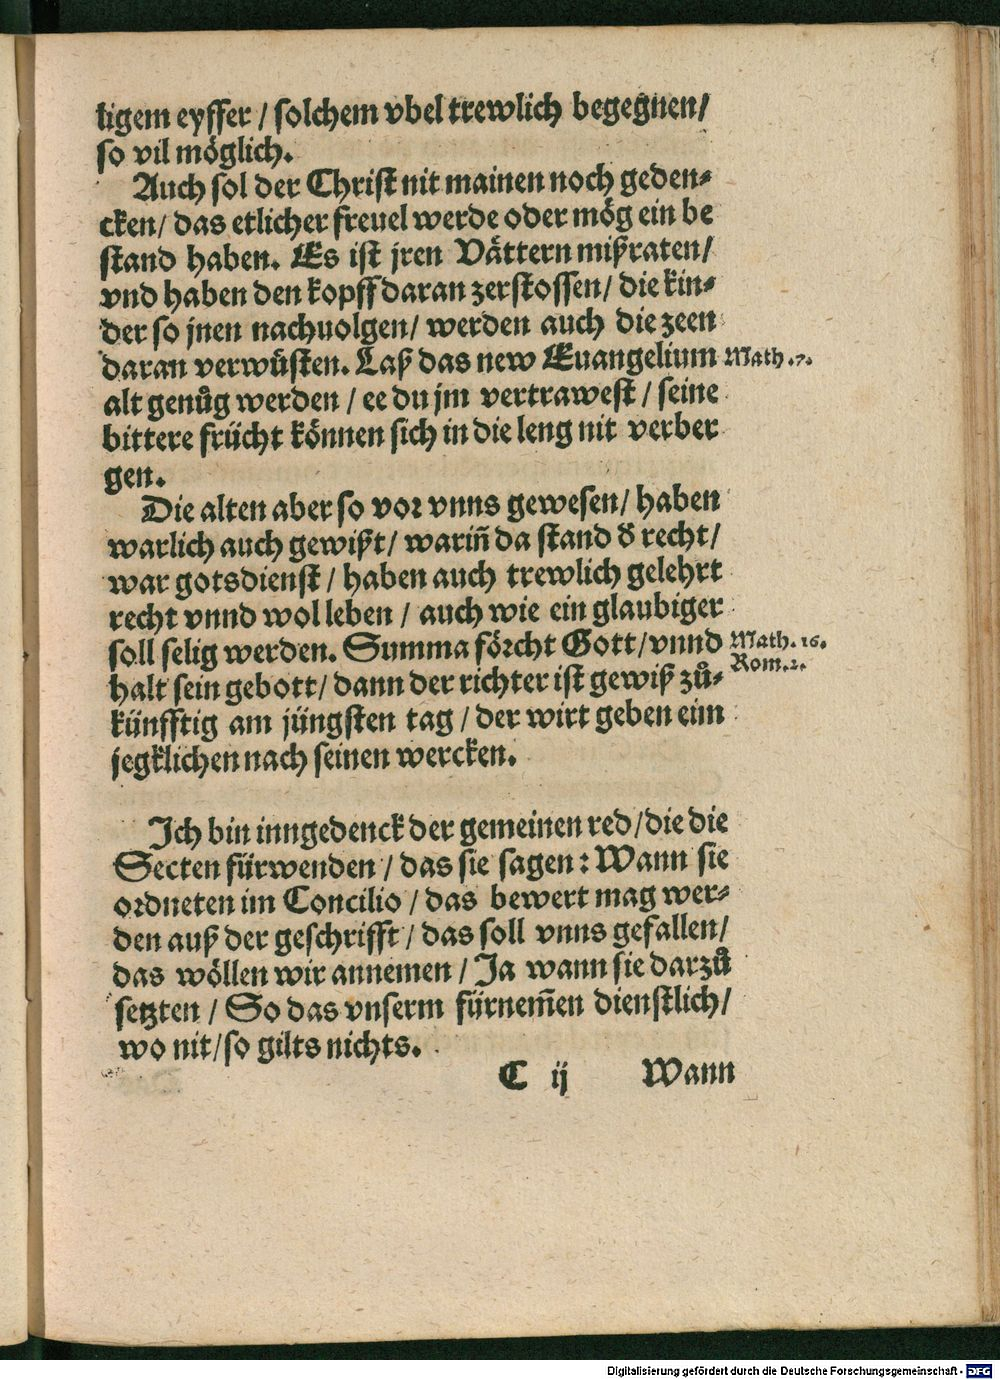 tigem eyffer / solchem vbel trewlich begegnen /
so vil möglich.
Auch sol der Christ nit mainen noch geden-
cken / das etlicher freuel werde oder mög ein be
stand haben. Es ist jren Vättern mißraten /
vnd haben den kopff daran zerstossen / die kin-
der so jnen nachuolgen / werden auch die zeen
daran verwüsten. Laß das new Euangelium
Math. 7.
alt genůg werden / ee du jm vertrawest / seine
bittere frücht können sich in die leng nit verber
gen.
Die alten aber so vor vnns gewesen / haben
warlich auch gewißt / wariñ da stand d̕ recht /
war gotsdienst / haben auch trewlich gelehrt
recht vnnd wol leben / auch wie ein glaubiger
soll selig werden. Summa förcht Gott / vnnd
Math. 16.
Rom. 2.
halt sein gebott / dann der richter ist gewiß zů-
künfftig am jüngsten tag / der wirt geben eim
jegklichen nach seinen wercken.
Ich bin inngedenck der gemeinen red / die die
Secten fürwenden / das sie sagen: Wann sie
ordneten im Concilio / das bewert mag wer-
den auß der geschrifft / das soll vnns gefallen /
das wöllen wir annemen / Ja wann sie darzů
setzten / So das vnserm fürnem̄en dienstlich /
wo nit / so gilts nichts.
C ij Wann
Digitalisierung gefördert durch die Deutsche Forschungsgemeinschaft - DFG